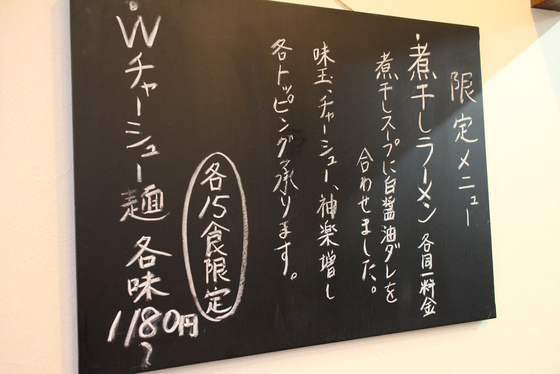 限定メニュー
・煮干しラーメン 各同一料金
煮干しスープに白醤油ダレを
合わせました。
味玉、チャーシュー、神楽増し
各トッピング承ります。
各15食限定
・Wチャーシュー麺 各味
1180円
～